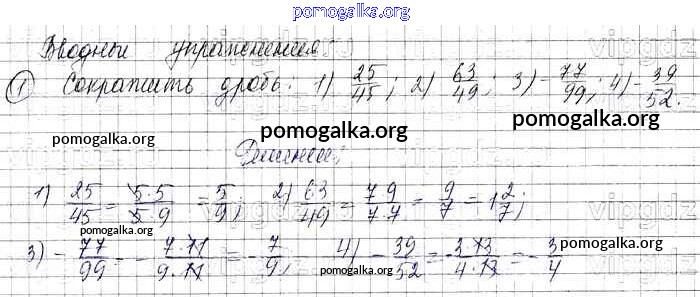 pomogalka.org
Вводные упражнения
① Сократить дробь. 1) 25/45; 2) 63/49; 3) -77/99; 4) -39/52.
pomogalka.org pomogalka.org pomogalka.org
Решение:
1) 25/45 = 5·5/5·9 = 5/9; 2) 63/49 = 7·9/7·7 = 9/7 = 1 2/7;
pomogalka.org pomogalka.org
3) -77/99 = -7·11/9·11 = -7/9; 4) -39/52 = -3·13/4·13 = -3/4
pomogalka.org pomogalka.org pomogalka.org